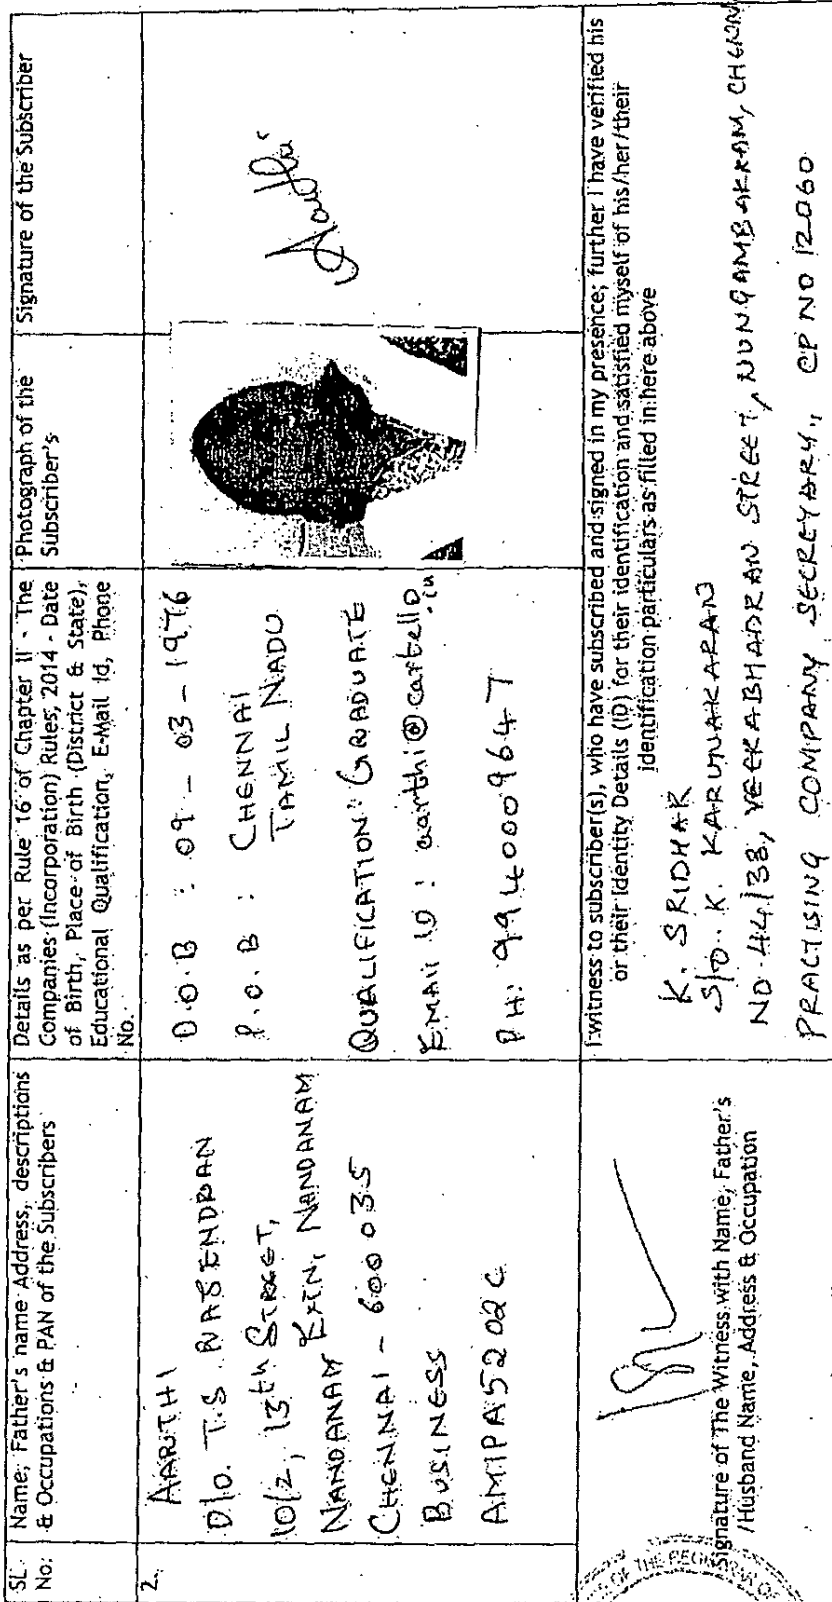 SL. No:
Name, Father's name Address, descriptions
& Occupations & PAN of the Subscribers
Details as per Rule 16 of Chapter II - The
Companies (Incorporation) Rules, 2014 - Date
of Birth, Place of Birth (District & State),
Educational Qualification, E-Mail Id, Phone
No.
Photograph of the
Subscriber's
Signature of the Subscriber
2.
AARTHI
D/O. T.S RAJENDRAN
10/2, 13th STREET,
NANDANAM EXTN, NANDANAM
CHENNAI - 600 035
BUSINESS
AMIPA5202C
D.O.B : 09 - 03 - 1976
P.O.B : CHENNAI
TAMIL NADU
QUALIFICATION: GRADUATE
EMAIL ID : aarthi@cartello.in
PH: 9940009647
Aarthi
Signature of The Witness with Name, Father's
/Husband Name, Address & Occupation
I witness to subscriber(s), who have subscribed and signed in my presence; further I have verified his
or their Identity Details (ID) for their identification and satisfied myself of his/her/their
identification particulars as filled in here above
K. SRIDHAR
S/O. K. KARUNAKARAN
NO. 44/38, VEERABHADRAN STREET, NUNGAMBAKKAM, CHENN
PRACTISING COMPANY SECRETARY, CP NO 12060
OF THE REGISTRAR OF